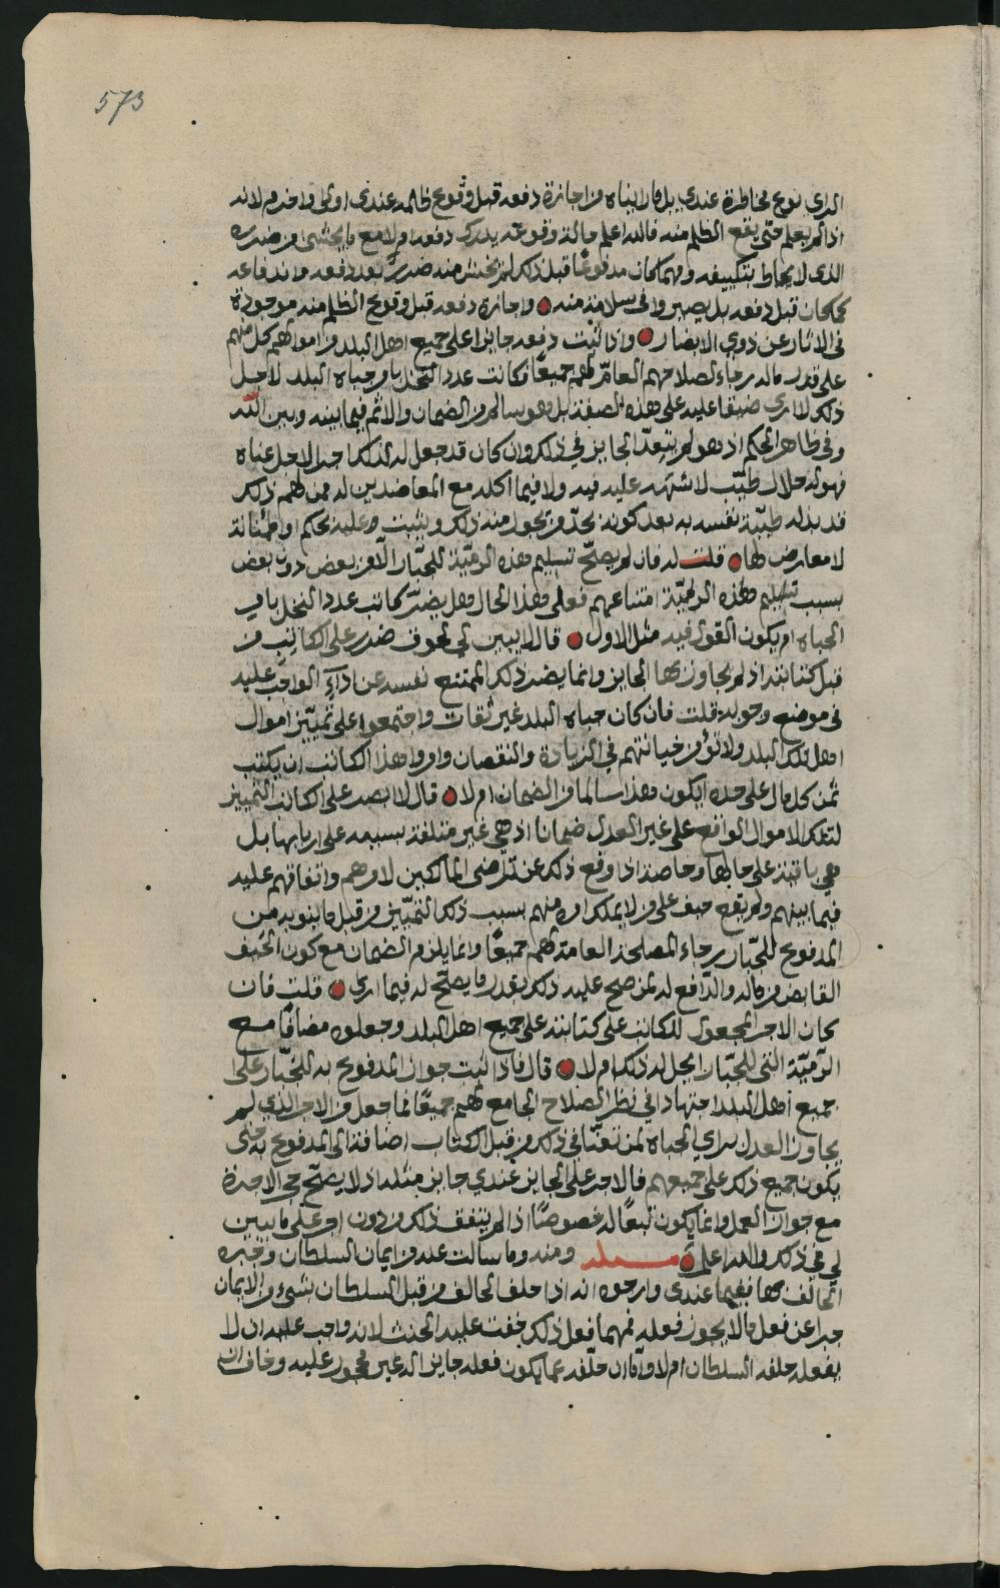 573
الذي نوع مخاطرة عندي بل ما لا يناه من اجازة دفعه قبل وقوع ظلمه عندي اولى واحزم لانه
اذا لم يعلم حتى يقع الظلم منه فالله اعلم حالة وقوعه يدرك دفعه ام لا مع ما يخشى من ضرره
الذي لا يحاط بتكييفه ومهما كان مدفوعا قبل ذلك لم يخش منه ضرر بعد دفعه واندفاعه
كما كان قبل دفعه بل يصير وافي سلامة منه واجازة دفعه قبل وقوع الظلم منه موجودة
في الاثار عن ذوي الابصار واذا ثبت دفعه جايزا على جميع اهل البلد من اموالهم كل منهم
على قدر ماله رجاء لصلاحهم العام لهم جميعا فكانت عدد النخل بامر جباه البلد لاجل
ذلك لا ارى ضيقا عليه على هذه الصفة بل هو سالم من الضمان والاثم فيما بينه وبين الله
وفي ظاهر الحكم اذ هو لم يتعد الجايز في ذلك وان كان قد جعل له لذلك اجرا لاجل عناه
فهو له حلال طيب لا شبهه عليه فيه ولا فيما اكله مع المعاضدين له ممن لهم ذلك
قد بذله طيبة نفسه به بعد كونه بحد من يجوز منه ذلك ويثبت وعليه بحكم او اطمئنانة
لا معارض لها قلت له فان لم يصح تسليم هذه الرمية للجبار الا من بعض دون بعض
بسبب تسليم هذه الرمية امتناعهم فعلى هذا الحال هل يضر كاتب عدد النخل بامر
الجباه ام يكون القول فيه مثل الاول قال لا يبين لي لحوق ضرر على الكاتب من
قبل كتابته اذ لم يجاوز بها الجايز وانما يضر ذلك الممتنع نفسه عن اداء الواجب عليه
في موضع وجوبه قلت فان كان جباه البلد غير ثقات واجتمعوا على تمييز اموال
اهل تلك البلد ولا تؤمن خيانتهم في الزيادة والنقصان وامروا هذا الكاتب ان يكتب
ثمن كل مال على حده ايكون هذا سالما من الضمان ام لا قال لا ابصر على الكاتب التمييز
لتلك الاموال الواقع على غير العدل ضمانا اذ هي غير متلفة بسببه على اربابها بل
هي باقية على حالها وخاصة اذا وقع ذلك عن تراضي المالكين لامرهم واتفاقهم عليه
فيما بينهم ولم يقع حيف على من لا يملك امره منهم بسبب ذلك التمييز من قبل ما ينوبه من
المدفوع للجبار رجاء المصلحة العامة لهم جميعا وانما يلزم الضمان مع كون الحيف
القابض من ماله والدافع له لمن صح عليه ذلك بقدر ما يصح له فيما ارى قلت فان
كان الاجر المجعول للكاتب على كتابته على جميع اهل البلد وجعلوه مضافا مع
الرمية التي للجبار ايحل له ذلك ام لا قال فاذا ثبت جواز المدفوع به للجبار على
جميع اهل البلد اجتهادا في نظر الصلاح الجامع لهم جميعا فما جعل من الاجر الذي لم
يجاوز العدل براي الجباه لمن تعنا في ذلك من قبل الكتاب اضافة الى المدفوع به حتى
يكون جميع ذلك على جميعهم فالاجر على الجايز عندي جايز مثله اذ لا يصح حجر الاجرة
مع جواز العمل وانما يكون تبعا له خصوصا اذا لم يتفق ذلك من دون اجر على ما يبين
لي في ذلك والله اعلم مسئلة ومنه وما سالت عنه من ايمان السلطان وجبره
الحالف بها ففيما عندي وارجوه انه اذا حلف الحالف من قبل السلطان بشيء من الايمان
جبرا عن فعل ما لا يجوز فعله فمهما فعل ذلك خفت عليه الحنث لانه واجب عليه ان لا
يفعله حلفه السلطان ام لا واما ان حلفه عما يكون فعله جايزا له غير محجور عليه وخاف ان